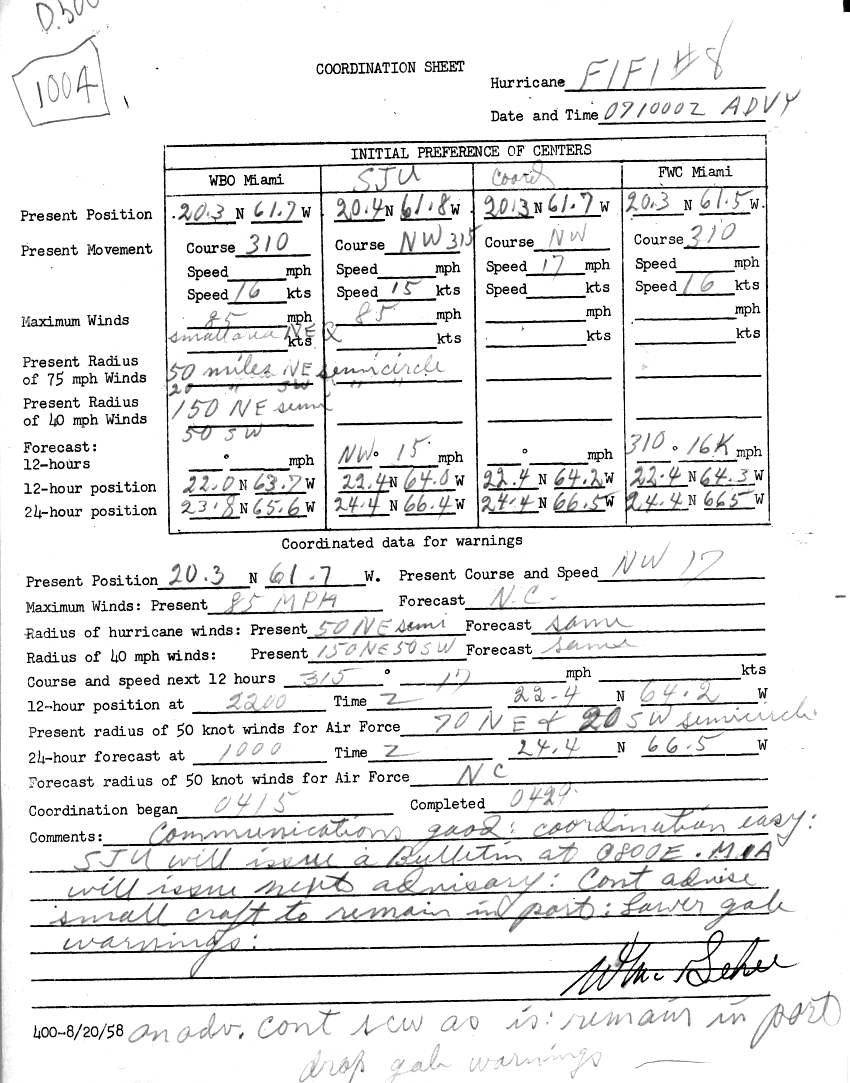 D.500
1004
COORDINATION SHEET
Hurricane FIFI #8
Date and Time 071000Z ADVY
INITIAL PREFERENCE OF CENTERS
WBO Miami SJU Coord FWC Miami
Present Position 20.3 N 61.7 W 20.4 N 61.8 W 20.3 N 61.7 W 20.3 N 61.5 W.
Present Movement Course 310 Course NW 315 Course NW Course 310
Speed mph Speed mph Speed 17 mph Speed mph
Speed 16 kts Speed 15 kts Speed kts Speed 16 kts
Maximum Winds 85 mph 85 mph mph mph
small area NE & kts kts kts kts
Present Radius of 75 mph Winds 50 miles NE semicircle
20 " SW " "
Present Radius of 40 mph Winds 150 NE semi
50 SW
Forecast:
12-hours ° mph NW ° 15 mph ° mph 310 ° 16K mph
12-hour position 22.0 N 63.7 W 22.4 N 64.0 W 22.4 N 64.2 W 22.4 N 64.3 W
24-hour position 23.8 N 65.6 W 24.4 N 66.4 W 24.4 N 66.5 W 24.4 N 665 W
Coordinated data for warnings
Present Position 20.3 N 61.7 W. Present Course and Speed NW 17
Maximum Winds: Present 85 MPH Forecast N.C.
Radius of hurricane winds: Present 50 NE semi Forecast same
Radius of 40 mph winds: Present 150 NE 50 SW Forecast same
Course and speed next 12 hours 315 ° 17 mph kts
12-hour position at 2200 Time Z 22.4 N 64.2 W
Present radius of 50 knot winds for Air Force 70 NE & 20 SW semicircle
24-hour forecast at 1000 Time Z 24.4 N 66.5 W
Forecast radius of 50 knot winds for Air Force NC
Coordination began 0415 Completed 0429
Comments: Communications good: coordination easy:
SJU will issue a Bulletin at 0800E. MIA
will issue next advisory: Cont advise
small craft to remain in port: Lower gale
warnings:
400-8/20/58 an adv. Cont scw as is: remain in port
drop gale warnings